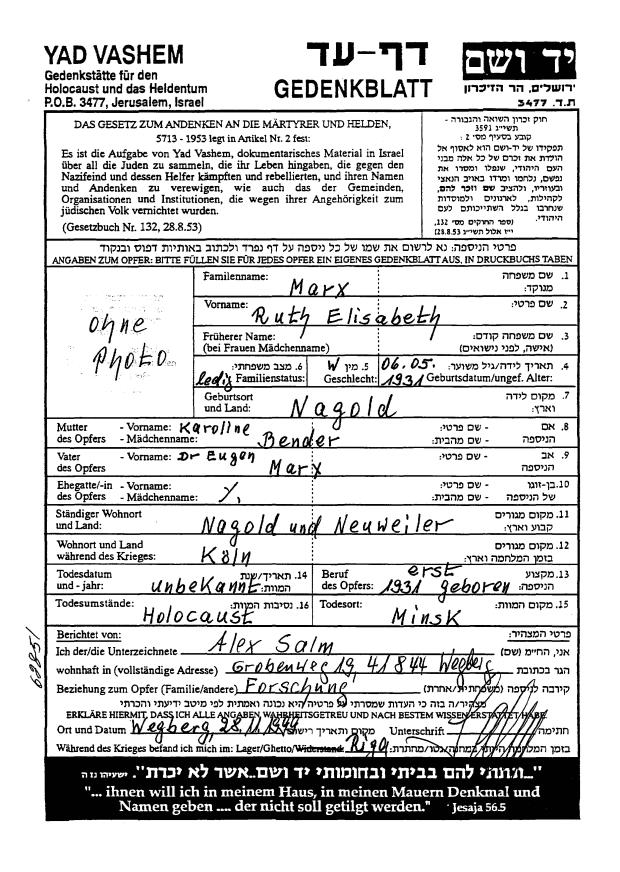 YAD VASHEM
Gedenkstätte für den
Holocaust und das Heldentum
P.O.B. 3477, Jerusalem, Israel
דף-עד
GEDENKBLATT
יד ושם
ירושלים, הר הזיכרון
ת.ד. 3477
DAS GESETZ ZUM ANDENKEN AN DIE MÄRTYRER UND HELDEN,
5713 - 1953 legt in Artikel Nr. 2 fest:
Es ist die Aufgabe von Yad Vashem, dokumentarisches Material in Israel
über all die Juden zu sammeln, die ihr Leben hingaben, die gegen den
Nazifeind und dessen Helfer kämpften und rebellierten, und ihren Namen
und Andenken zu verewigen, wie auch das der Gemeinden,
Organisationen und Institutionen, die wegen ihrer Angehörigkeit zum
jüdischen Volk vernichtet wurden.
(Gesetzbuch Nr. 132, 28.8.53)
חוק זכרון השואה והגבורה -
קובע בסעיף מס' 2:
תפקידו של יד-ושם הוא לאסוף אל
המולדת את זכרם של כל אלה מבני
העם היהודי, שנפלו ומסרו את
נפשם, נלחמו ומרדו באויב הנאצי
ובעוזריו, ולהציב שם וזכר להם,
לקהילות, לארגונים ולמוסדות
שנחרבו בגלל השתייכותם לעם
היהודי.
(ספר החוקים מס' 132,
פרטי הניספה: נא לרשום את שמו של כל ניספה על דף נפרד ולכתוב באותיות דפוס ובנקוד
ANGABEN ZUM OPFER: BITTE FÜLLEN SIE FÜR JEDES OPFER EIN EIGENES GEDENKBLATT AUS, IN DRUCKBUCHS TABEN
ohne
PHOTO
Familienname: Marx 1. שם משפחה מנוקד:
Vorname: Ruth Elisabeth 2. שם פרטי:
Früherer Name: (bei Frauen Mädchenname) 3. שם משפחה קודם: (אישה, לפני נישואים)
ledig Familienstatus: 6. מצב משפחתי: W Geschlecht: 5. מין 06.05. 1931 Geburtsdatum/ungef. Alter: 4. תאריך לידה/גיל משוער:
Geburtsort und Land: Nagold 7. מקום לידה וארץ:
Mutter des Opfers - Vorname: Karoline - שם פרטי: 8. אם
- Mädchenname: Bender - שם מהבית: הניספה
Vater des Opfers - Vorname: Dr Eugen - שם פרטי: 9. אב
Marx הניספה
Ehegatte/-in des Opfers - Vorname: - שם פרטי: 10. בן-זוגו
- Mädchenname: - שם מהבית: של הניספה
Ständiger Wohnort und Land: Nagold und Neuweiler 11. מקום מגורים קבוע וארץ:
Wohnort und Land während des Krieges: Köln 12. מקום מגורים בזמן המלחמה וארץ:
Todesdatum und - jahr: unbekannt 14. תאריך/שנת המוות: Beruf des Opfers: erst 1931 geboren 13. מקצוע הניספה:
Todesumstände: Holocaust 16. נסיבות המוות: Todesort: Minsk 15. מקום המוות:
Berichtet von: פרטי המצהיר:
Ich der/die Unterzeichnete Alex Salm אני, החי"מ (שם)
wohnhaft in (vollständige Adresse) Grobenweg 19, 41844 Wegberg הגר בכתובת
Beziehung zum Opfer (Familie/andere) Forschung קירבה לניספה (משפחתית/אחרת)
מצהיר/ה בזה כי העדות שמסרתי על פרטיה היא נכונה ואמתית לפי מיטב ידיעתי והכרתי
ERKLÄRE HIERMIT, DASS ICH ALLE ANGABEN WAHRHEITSGETREU UND NACH BESTEM WISSEN ERSTATTET HABE.
Ort und Datum Wegberg, מקום ותאריך Unterschrift חתימה:
Während des Krieges befand ich mich im: Lager/Ghetto/Widerstand: Riga בזמן המלחמה הייתי
"...ונתתי להם בביתי ובחומותי יד ושם...אשר לא יכרת". ישעיהו נו ה
"... ihnen will ich in meinem Haus, in meinen Mauern Denkmal und
Namen geben .... der nicht soll getilgt werden." Jesaja 56.5